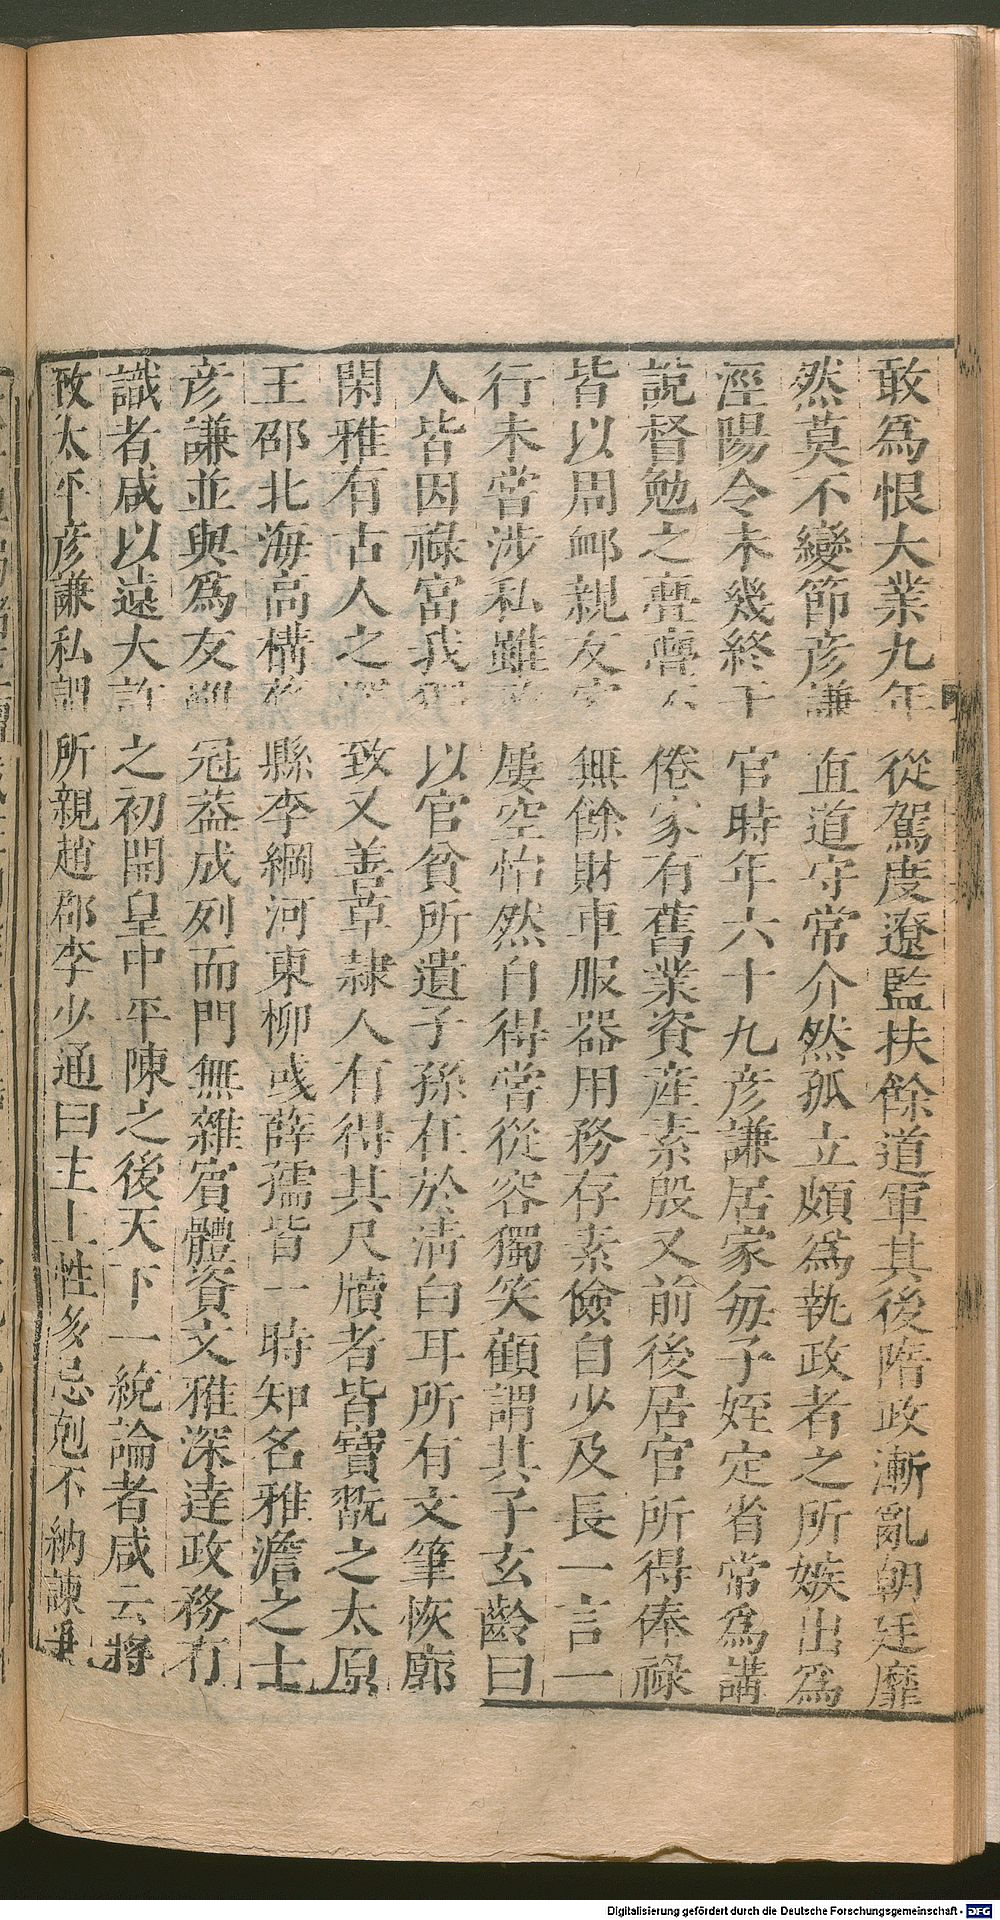 敢爲恨大業九年從駕度遼監扶餘道軍其後隋政漸亂朝廷靡
然莫不變節彦謙直道守常介然孤立頗爲執政者之所嫉出爲
涇陽令未幾終于官時年六十九彦謙居家每子姪定省常爲講
說督勉之亹亹不倦家有舊業資産素殷又前後居官所得俸祿
皆以周衈親友無餘財車服器用務存素儉自少及長一言一
行未嘗涉私雖屢空怡然自得嘗從容獨笑顧謂其子玄齡曰
人皆因祿富我以官貧所遺子孫在於清白耳所有文筆恢廓
閑雅有古人之致又善草隷人有得其尺牘者皆寶翫之太原
王邵北海高構縣李綱河東柳彧薛孺皆一時知名雅澹之士
彦謙並與爲友冠葢成列而門無雜賓體資文雅深達政務有
識者咸以遠大許之初開皇中平陳之後天下一統論者咸云將
致太平彦謙私謂所親趙郡李少通曰主上性多忌剋不納諫爭
Digitalisierung gefördert durch die Deutsche Forschungsgemeinschaft - DFG